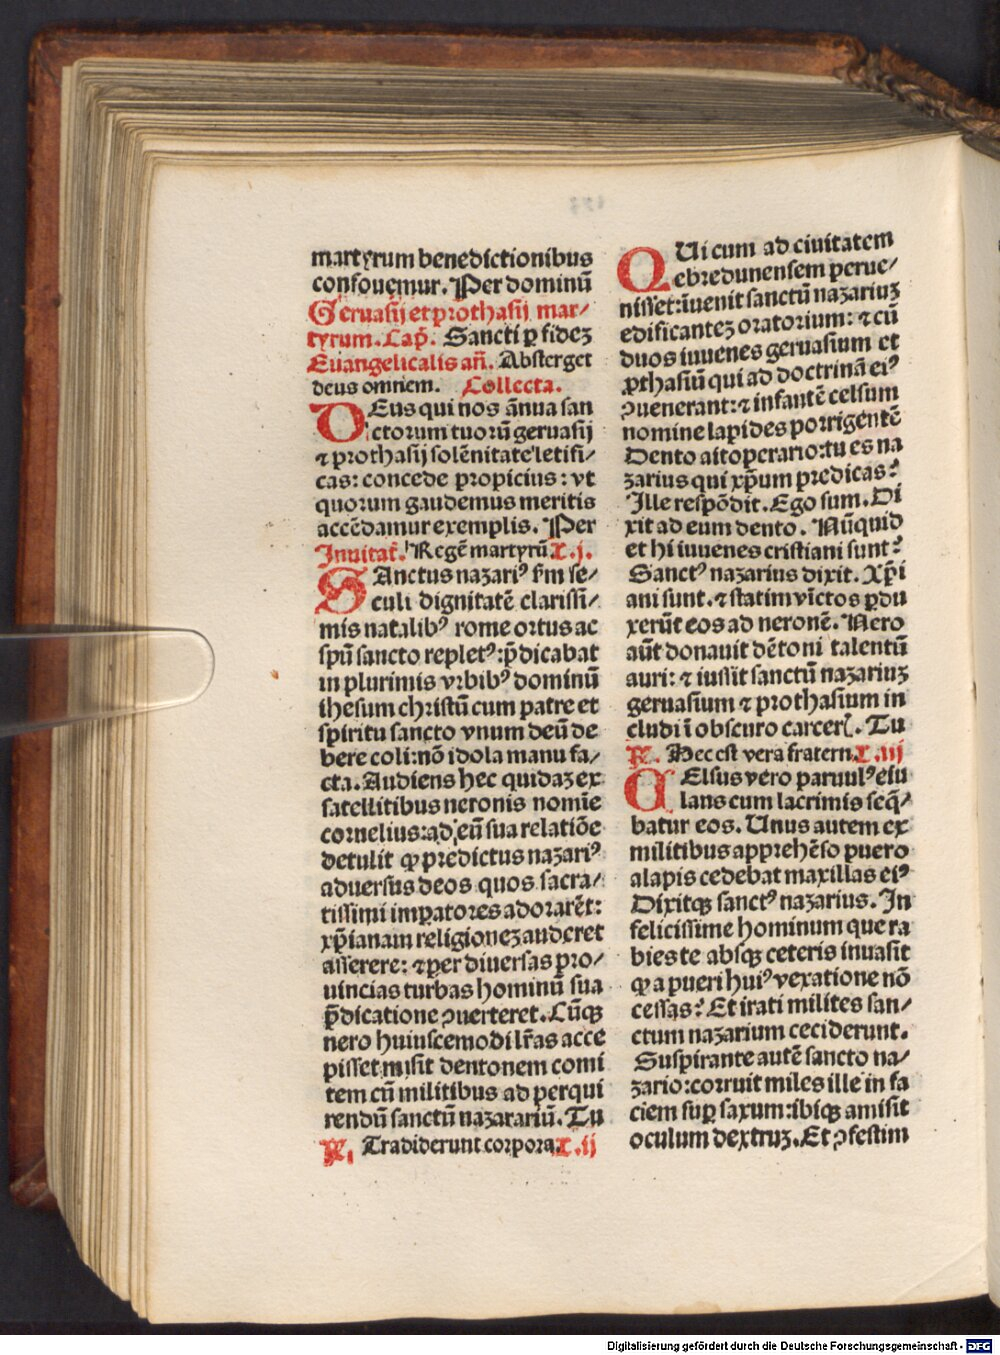 martyrum benedictionibus
confouemur. Per dominū
Geruasij et prothasij mar-
tyrum. Cap̄. Sancti ꝑ fideꝫ
Euangelicalis añ. Absterget
deus omnem. Collecta.
DEus qui nos ānua san
ctorum tuorū geruasij
⁊ prothasij solēnitate letifi-
cas: concede propicius: vt
quorum gaudemus meritis
accēdamur exemplis. Per
Inuitat̄. Regē martyrū L. j.
SAnctus nazariꝰ fm se/
culi dignitatē clarissi/
mis natalibꝰ rome ortus ac
spū sancto repletꝰ: p̄dicabat
in plurimis vrbibꝰ dominū
ihesum christū cum patre et
spiritu sancto vnum deū de
bere coli: nō idola manu fa/
cta. Audiens hec quidaꝫ ex
satellitibus neronis nomīe
cornelius: ad eū sua relatiōe
detulit ꝙ predictus nazariꝰ
aduersus deos quos sacra/
tissimi imꝑatores adorarēt:
xp̄ianam religioneꝫ auderet
asserere: ⁊ per diuersas pro/
uincias turbas hominū sua
p̄dicatione ꝯuerteret. Cūqꝫ
nero huiuscemodi lr̄as acce
pisset misit dentonem comi
tem cū militibus ad perqui
rendū sanctū nazarariū. Tu
℞. Tradiderunt corpora. L. ij
QUi cum ad ciuitatem
ebredunensem perue/
nisset: īuenit sanctū nazariuꝫ
edificanteꝫ oratorium: ⁊ cū
duos iuuenes geruasium et
ꝓthasiū qui ad doctrinā eiꝰ
ꝯuenerant: ⁊ infantē celsum
nomine lapides porrigentē
Dento ait oꝑerario: tu es na
zarius qui xp̄um predicas?
Ille respōdit. Ego sum. Di
xit ad eum dento. Nūquid
et hi iuuenes cristiani sunt?
Sanctꝰ nazarius dixit. Xp̄i
ani sunt. ⁊ statim vīctos ꝑdu
xerūt eos ad neronē. Nero
aūt donauit dētoni talentū
auri: ⁊ iussit sanctū nazariuꝫ
geruasium ⁊ prothasium in
cludi ī obscuro carceꝝ. Tu
℞. Hec est vera fratern. L. iij
CElsus vero paruulꝰ eiu
lans cum lacrimis seq̄/
batur eos. Unus autem ex
militibus apprehēso puero
alapis cedebat maxillas eiꝰ
Dixitqꝫ sanctꝰ nazarius. In
felicissime hominum que ra
bies te absqꝫ ceteris inuasit
ꝙ a pueri huiꝰ vexatione nō
cessas? Et irati milites san/
ctum nazarium ceciderunt.
Suspirante autē sancto na/
zario: corruit miles ille in fa
ciem suꝑ saxum: ibiqꝫ amisit
oculum dextruꝫ. Et ꝯfestim
Digitalisierung gefördert durch die Deutsche Forschungsgemeinschaft - DFG